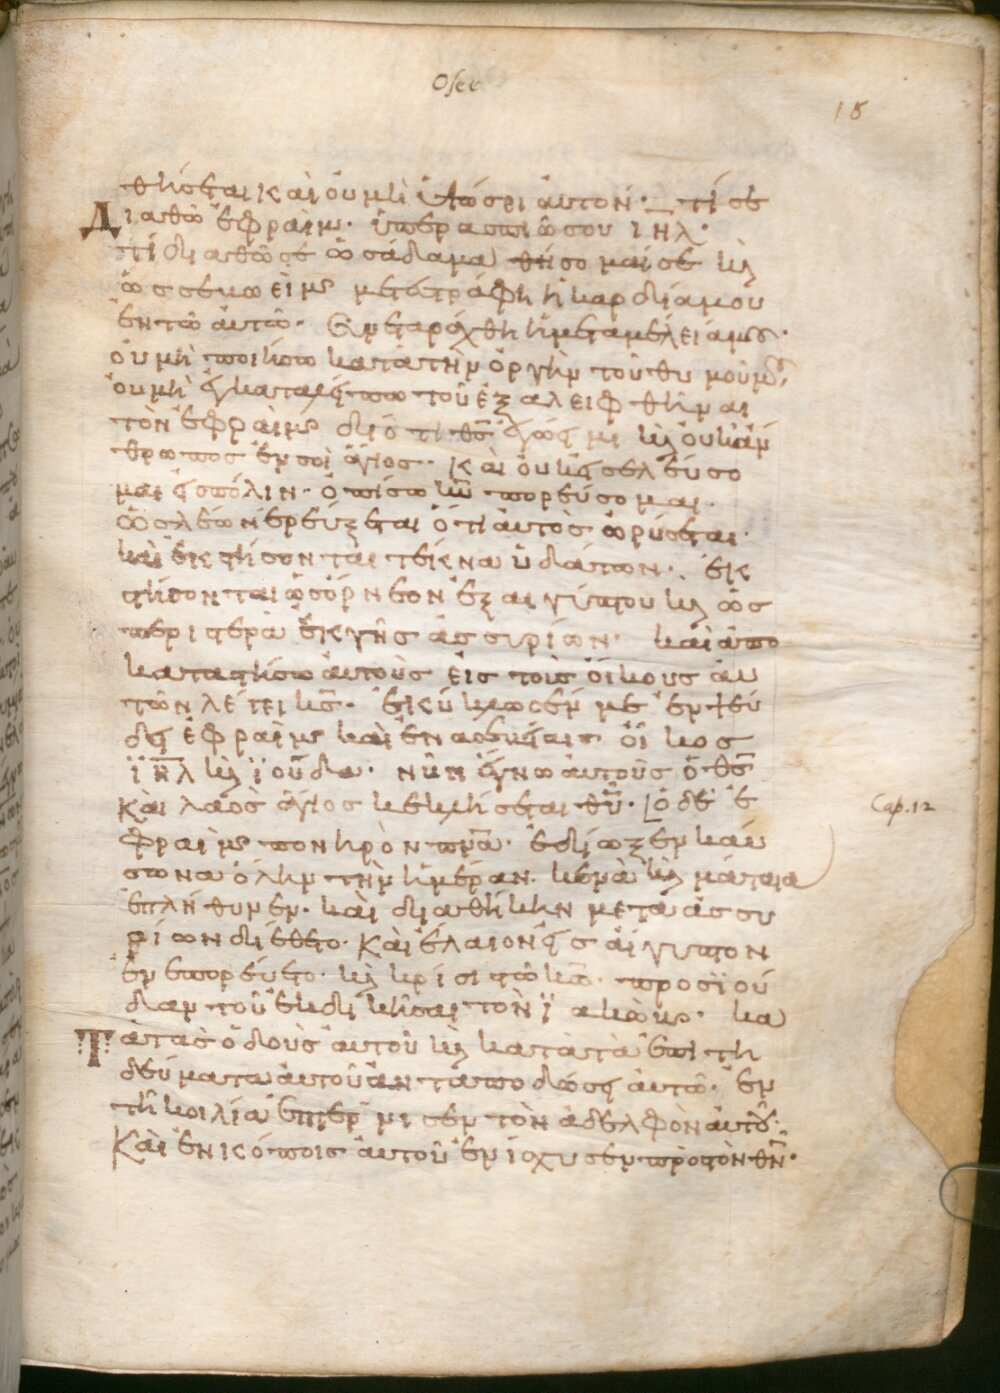 Osee
18
θήσεται καὶ οὐ μὴ ὑψώσει αὐτόν· τί σε
Διαθῶ ἐφραὶμ· ὑπερασπιῶ σου ιηλ·
τί διαθῶ σε ὡς ἀδαμα θήσομαί σε κ(αὶ)
ὡς σεβωεὶμ μετεστράφη ἡ καρδία μου
ἐν τῶ αὐτῶ· συνεταράχθη ἡ μεταμέλειά μου·
οὐ μὴ ποιήσω κατὰ τὴν ὀργὴν τοῦ θυμοῦ μου,
οὐ μὴ ἐγκαταλείπω τοῦ ἐξαλειφθῆναι
τὸν ἐφραὶμ διότι θς ἐγώ εἰμι κ(αὶ) οὐκ ἄν
θρωπος ἐν σοὶ ἅγιος· Καὶ οὐκ εἰσελεύσο
μαι εἰς πόλιν· ὀπίσω κυ πορεύσομαι·
ὡς λέων ἐρεύξεται ὅτι αὐτὸς ὠρύσεται·
καὶ ἐκστήσονται τέκνα ὑδάτων· ἐκ
στήσονται ὡς ὄρνεον ἐξ αἰγύπτου κ(αὶ) ὡς
περιστερὰ ἐκ γῆς ἀσσυρίων· καὶ ἀπο
καταστήσω αὐτοὺς εἰς τοὺς οἴκους αὐ
τῶν λέγει κς· ἐκύκλωσέν με ἐν ψεύ
δει ἐφραὶμ καὶ ἐν ἀσεβείαις οἶκος
ἰηλ κ(αὶ) ἰούδα· νῦν ἔγνω αὐτοὺς ὁ θς
Καὶ λαὸς ἅγιος κεκλήσεται θυ· [ὁ δὲ ἐ
Cap. 12
φραὶμ πονηρὸν πνα· ἐδίωξεν καύ
σωνα ὅλην τὴν ἡμέραν· κενὰ κ(αὶ) μάταια
ἐπλήθυνεν· καὶ διαθήκην μετὰ ἀσσυ
ρίων διέθετο· Καὶ ἔλαιον εἰς αἴγυπτον
ἐνεπορεύετο· κ(αὶ) κρίσις τῶ κω· πρὸς ἰού
δαν τοῦ ἐκδικῆσαι τὸν ἰακώβ· κα
Τὰ τὰς ὁδοὺς αὐτοῦ κ(αὶ) κατὰ τὰ ἐπιτη
δεύματα αὐτοῦ ἀνταποδώσει αὐτῶ· ἐν
τῆ κοιλία ἐπτέρνισεν τὸν ἀδελφὸν αὐτοῦ·
Καὶ ἐν κόποις αὐτοῦ ἐνίσχυσεν πρὸς τὸν θν·